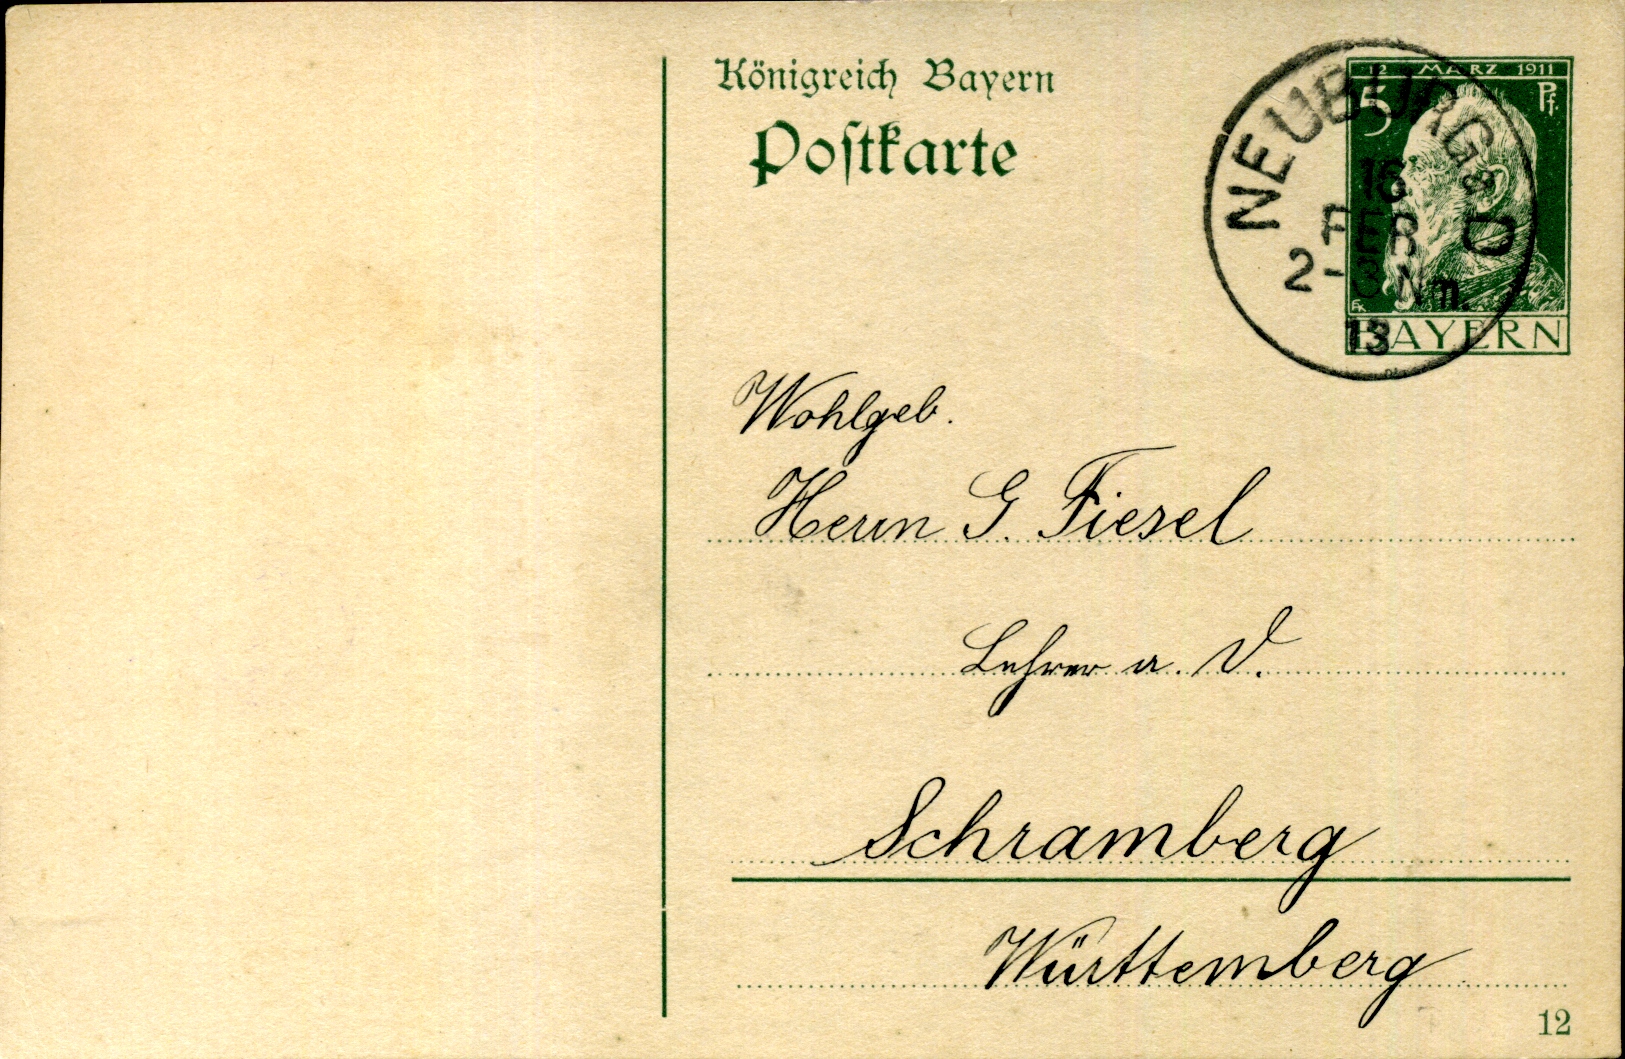 Königreich Bayern
Postkarte
12 MARZ 1911
5 Pf.
BAYERN
NEUBURG a D
16
FEB
2-3 Nm.
13
Wohlgeb.
Herrn G. Fiesel
Lehrer a. D.
Schramberg
Württemberg
12